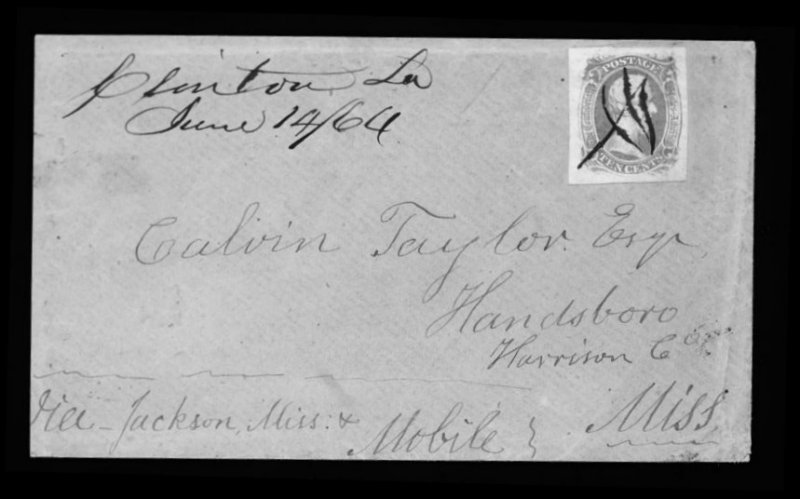 Clinton, La
June 14/64
POSTAGE
TEN CENTS
Calvin Taylor. Esqr
Handsboro
Harrison Co
Miss
via Jackson, Miss. &
Mobile